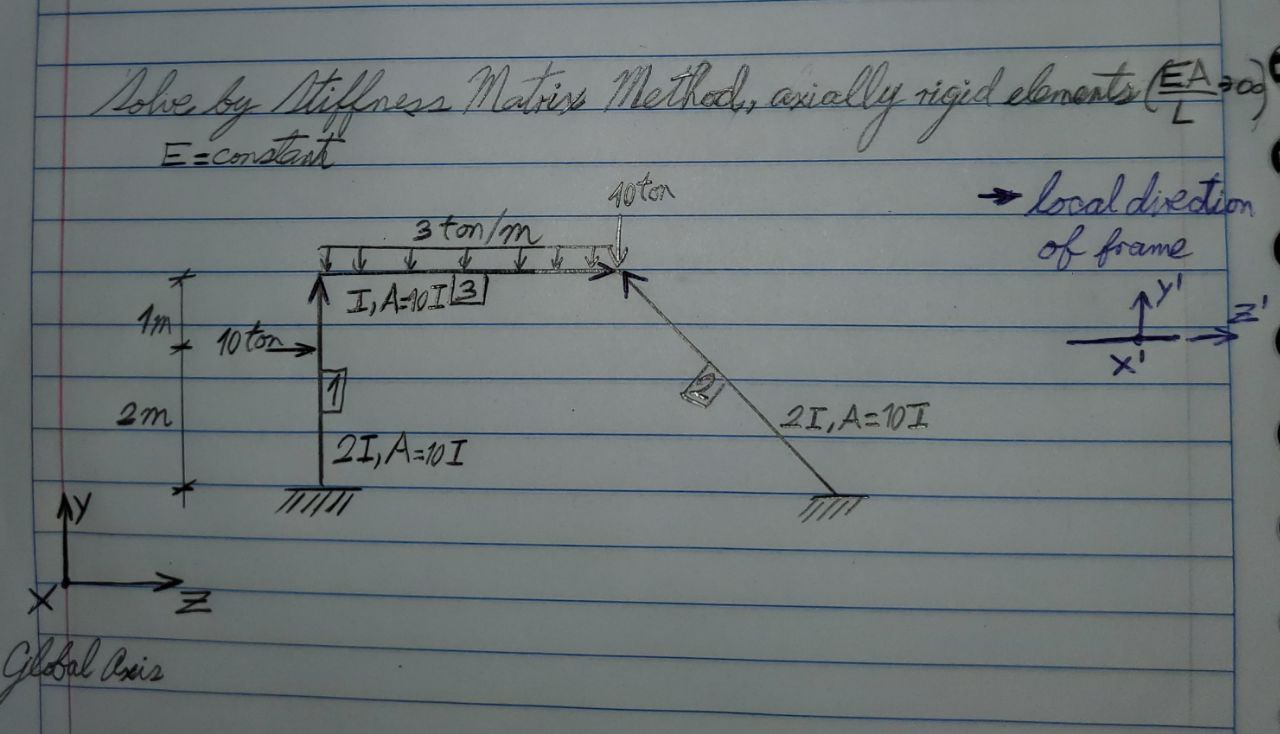 Solve by Stiffness Matrix Method, axially rigid elements (EA/L → ∞)
E=constant
10ton
→ local direction
of frame
3 ton/m
I, A=10I 3
1m
10ton
Y'
Z'
X'
1
2
2m
2I, A=10I
2I, A=10I
Y
X
Z
Global Axis